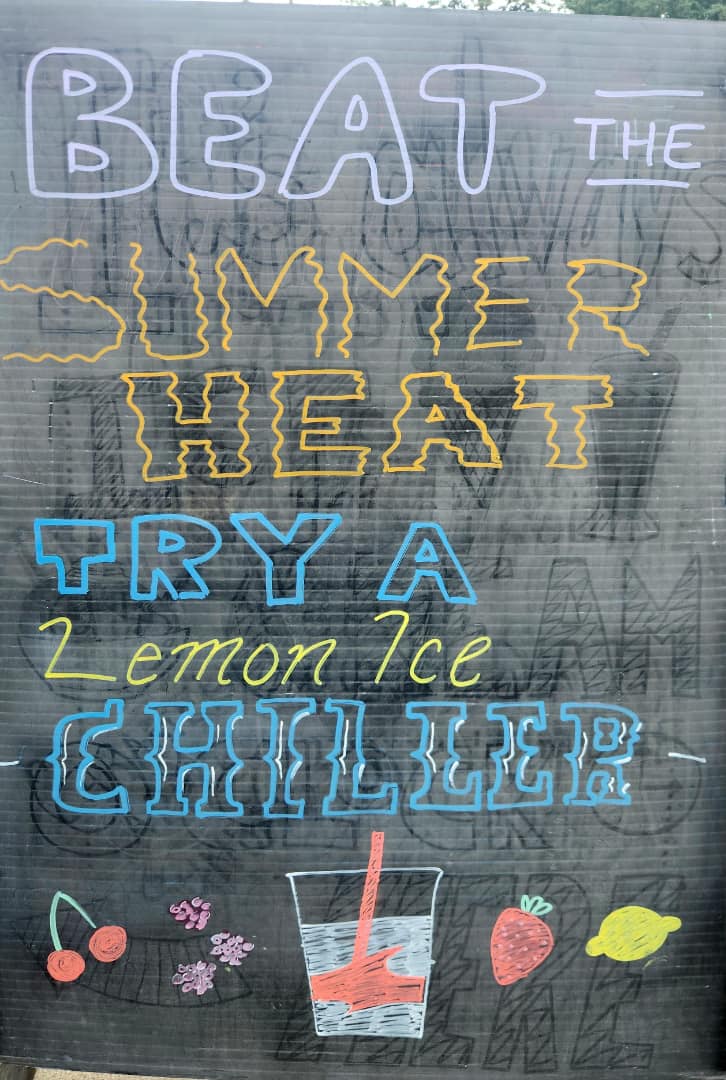 BEAT THE
SUMMER
HEAT
TRY A
Lemon Ice
CHILLER